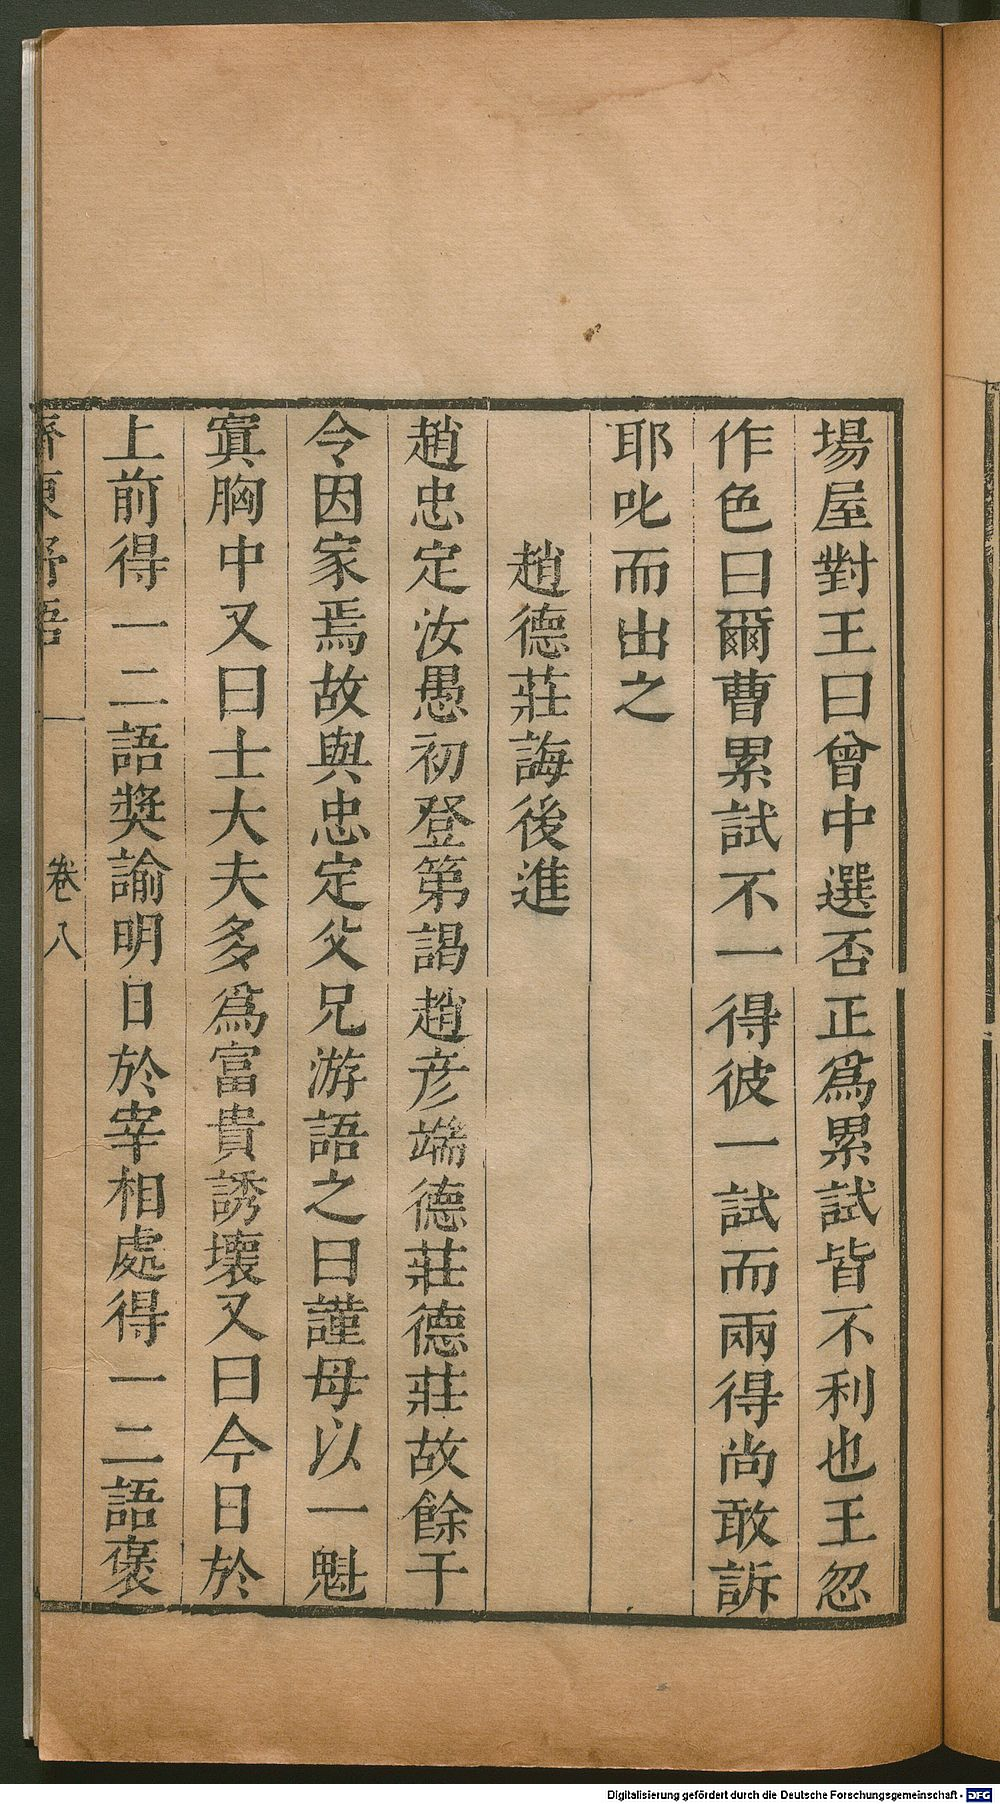 場屋對王曰曾中選否正爲累試皆不利也王忽
作色曰爾曹累試不一得彼一試而兩得尚敢訴
耶叱而出之
趙德莊誨後進
趙忠定汝愚初登第謁趙彥端德莊德莊故餘干
令因家焉故與忠定父兄游語之曰謹母以一魁
寘胸中又曰士大夫多爲富貴誘壞又曰今日於
上前得一二語獎諭明日於宰相處得一二語褒
齊東野語 卷八
Digitalisierung gefördert durch die Deutsche Forschungsgemeinschaft - DFG